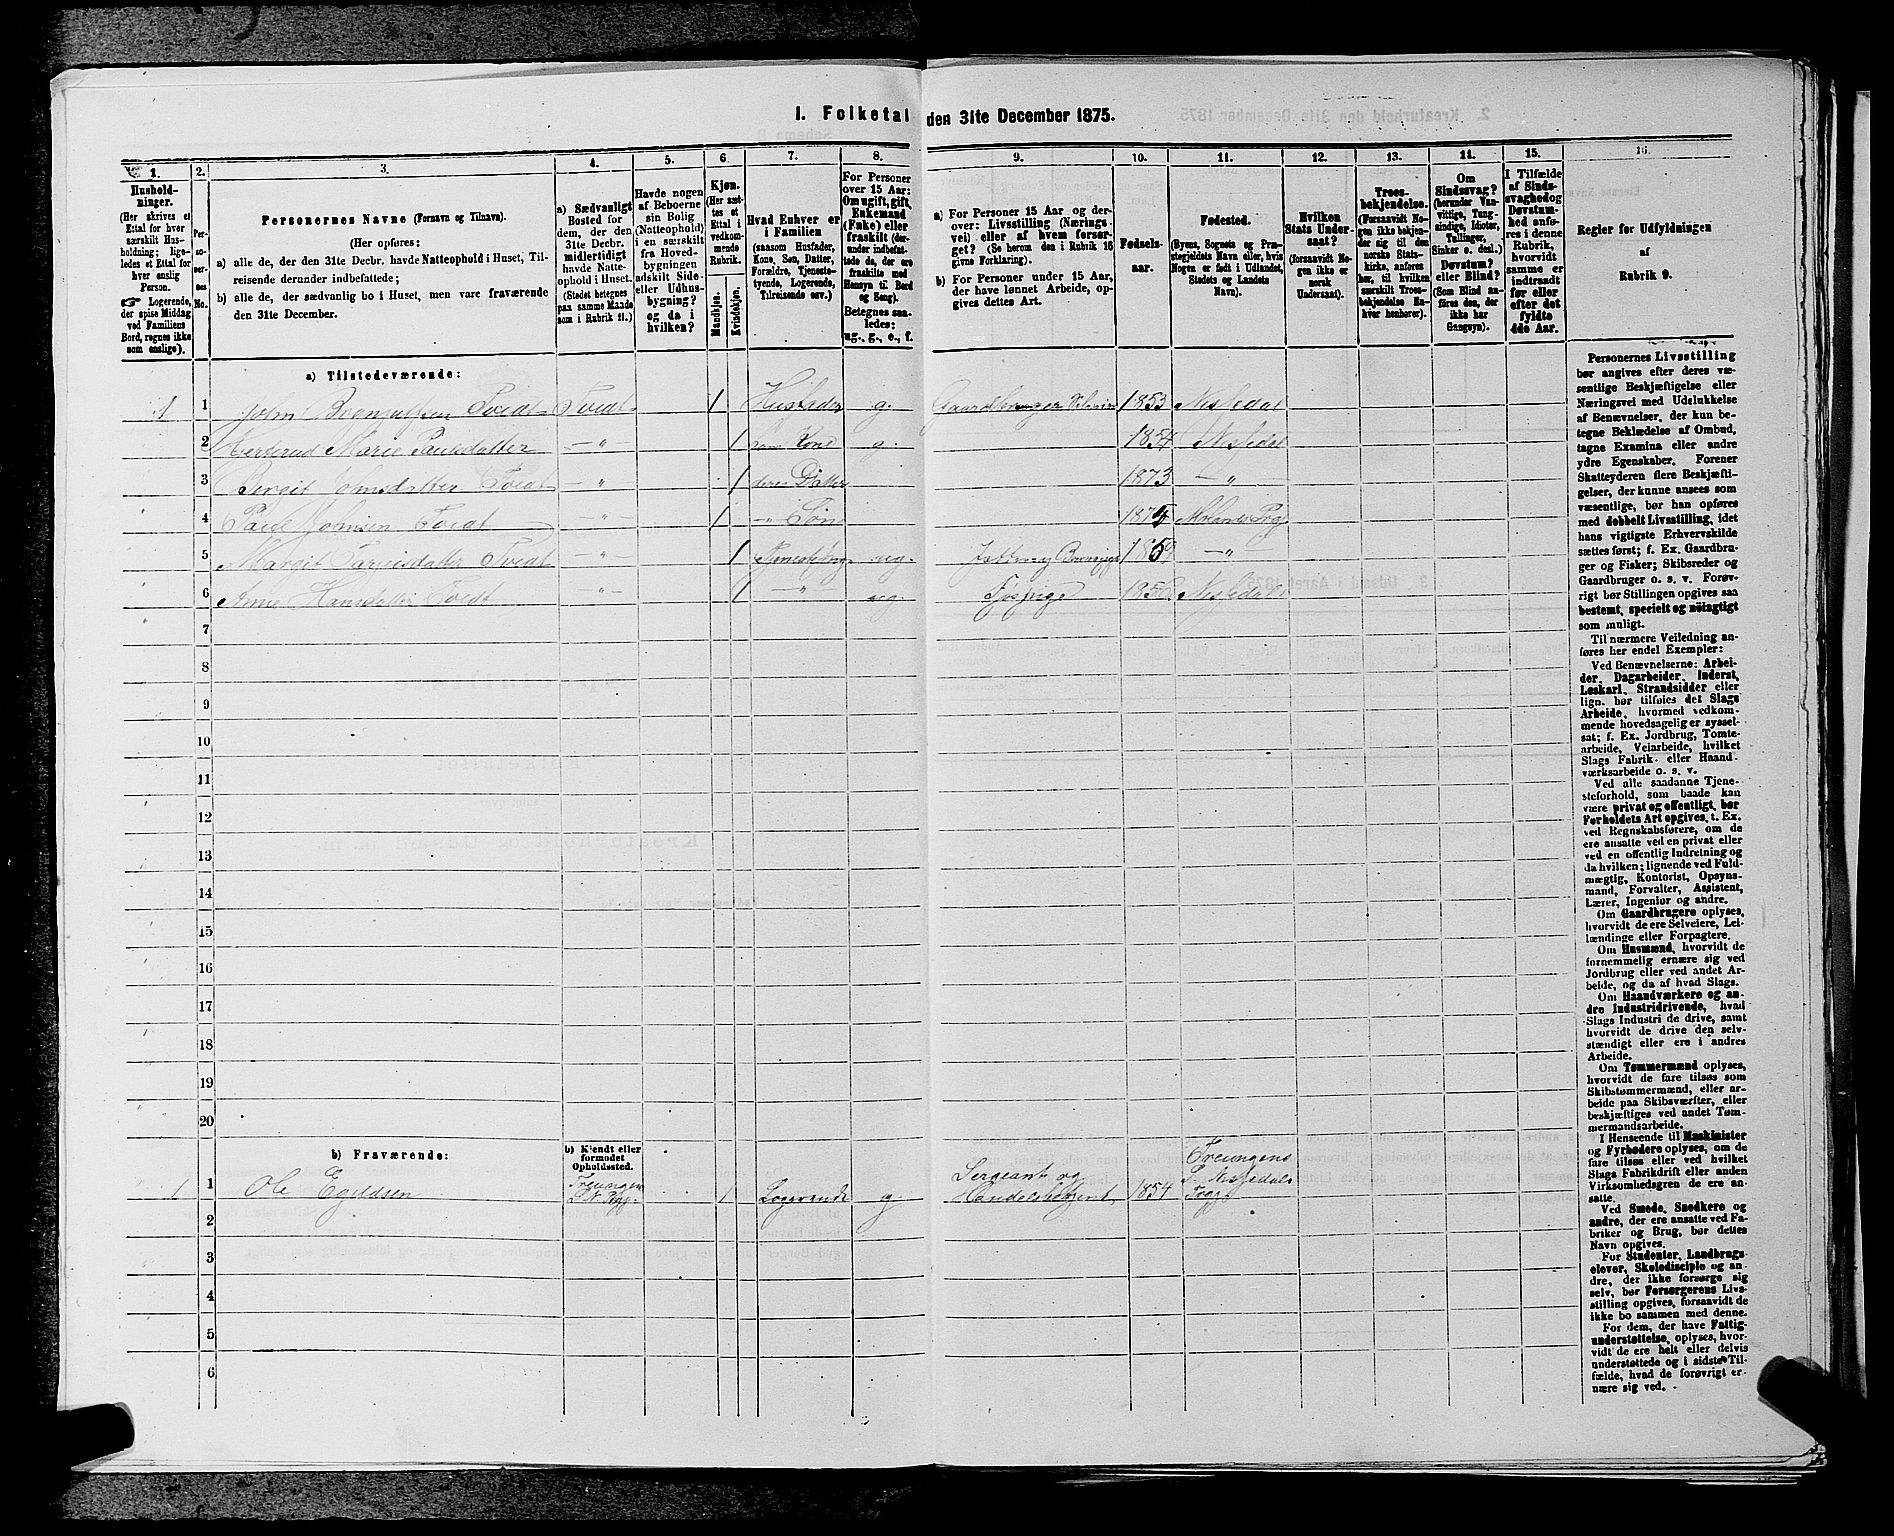 1. Folketal den 31te December 1875.
1.
Hushold-
ninger.
(Her skrives et
Ettal for hver
særskilt Hus-
holdning; lige-
ledes et Ettal for
hver enslig
Person.
☞ Logerende,
der spise Middag
ved Familiens
Bord, regnes ikke
som enslige).
2.
Per-
so-
ner-
nes
No.
3.
Personernes Navne (Fornavn og Tilnavn).
(Her opføres:
a) alle de, der den 31te Decbr. havde Natteophold i Huset, Til-
reisende derunder indbefattede;
b) alle de, der sædvanlig bo i Huset, men vare fraværende
den 31te December.
4.
a) Sædvanligt
Bosted for
dem, der den
31te Decbr.
midlertidigt
havde Natte-
ophold i Huset.
(Stedet betegnes
paa samme Maade
som i Rubrik 11.)
5.
Havde nogen
af Beboerne
sin Bolig
(Natteophold)
i en særskilt
fra Hoved-
bygningen
adskilt Side-
eller Udhus-
bygning?
og da i
hvilken?
6.
Kjøn.
(Her sæt-
tes et
Ettal i
vedkom-
mende
Rubrik.
Mandkjøn.
Kvindekjøn.
7.
Hvad Enhver er
i Familien
(saasom Husfader,
Kone, Søn, Datter,
Forældre, Tjeneste-
tyende, Logerende,
Tilreisende osv.)
8.
For Personer
over 15 Aar:
Om ugift, gift,
Enkemand
(Enke) eller
fraskilt (der-
under indbefat-
tede de, der ere
fraskilte med
Hensyn til Bord
og Seng).
Betegnes saa-
ledes:
ug., g., e., f.
9.
a) For Personer 15 Aar og der-
over: Livsstilling (Nærings-
vei) eller af hvem forsør-
get? (Se herom den i Rubrik 16
givne Forklaring).
b) For Personer under 15 Aar,
der have lønnet Arbeide, op-
gives dettes Art.
10.
Fødsels-
aar.
11.
Fødested.
(Byens, Sognets og Præ-
stegjeldets Navn eller, hvis
Nogen er født i Udlandet,
Stedets og Landets
Navn).
12.
Hvilken
Stats Under-
saat?
(forsaavidt No-
gen ikke er
norsk
Undersaat).
13.
Troes-
bekjendelse.
(Forsaavidt No-
gen ikke bekjen-
der sig til den
norske Stats-
kirke, anføres
her, til hvilken
særskilt Troes-
bekjendelse En-
hver henhører).
14.
Om
Sindssvag?
(herunder Van-
vittige, Tung-
sindige, Idioter,
Tullinger,
Sinker o. desl.)
Døvstum?
eller Blind?
(Som Blind an-
føres den, der
ikke har
Gangsyn).
15.
I Tilfælde
af Sinds-
svaghed og
Døvstum-
hed anfø-
res i denne
Rubrik,
hvorvidt
samme er
indtraadt
før eller
efter det
fyldte
4de Aar.
16.
Regler for Udfyldningen
af
Rubrik 9.
a) Tilstedeværende:
1 1 John Tveidt Tveidt 1 Husfader g. Gaardbruger 1853 Nissedal
2 Marie Paulsdatter —„— 1 Kone g. 1854 Nissedal
3 Birgit Johnsdatter Tveidt —„— 1 deres Datter 1873 —„—
4 Paul Johnsen Tveidt —„— 1 —„— Søn 1875
5 Margit Tveidt —„— 1 ug. —„—
6 Anne Hansdatter Tveidt —„— 1 —„— ug. Nissedal
7
8
9
10
11
12
13
14
15
16
17
18
19
20
b) Fraværende:
b) Kjendt eller
formodet
Opholdssted.
1 1 Ole Egildsen Treungen 1 Logerende g Sergeant og 1854 Treungens
2
3
4
5
6
Personernes Livsstilling
bør angives efter deres væ-
sentlige Beskjæftigelse eller
Næringsvei med Udelukkelse
af Benævnelser, der kun be-
tegne Beklædelse af Ombud,
tagne Examina eller andre
ydre Egenskaber. Forener
Skatteyderen flere Beskjæfti-
gelser, der kunne ansees som
væsentlige, bør han opføres
med dobbelt Livsstilling, idet
hans vigtigste Erhvervskilde
sættes først; f. Ex. Gaardbru-
ger og Fisker; Skibsreder og
Gaardbruger o. s. v. Forøv-
rigt bør Stillingen opgives saa
bestemt, specielt og nøiagtigt
som muligt.
Til nærmere Veiledning an-
føres her endel Exempler:
Ved Benævnelserne: Arbei-
der, Dagarbeider, Inderst,
Løskarl, Strandsidder eller
lign. bør tilføies det Slags
Arbeide, hvormed vedkom-
mende hovedsagelig er syssel-
sat; f. Ex. Jordbrug, Tomte-
arbeide, Veiarbeide, hvilket
Slags Fabrik- eller Haand-
værksarbeide o. s. v.
Ved alle saadanne Tjene-
steforhold, som baade kan
være privat og offentligt, bør
Forholdets Art opgives, t. Ex.
ved Regnskabsførere, om de
ere ansatte ved en privat eller
ved en offentlig Indretning og
da hvilken; lignende ved Fuld-
mægtig, Kontorist, Opsyns-
mand, Forvalter, Assistent,
Lærer, Ingeniør og andre.
Om Gaardbrugere oplyses,
hvorvidt de ere Selveiere, Lei-
lændinge eller Forpagtere.
Om Husmænd, hvorvidt de
fornemmelig ernære sig ved
Jordbrug eller ved andet Ar-
beide, og da af hvad Slags.
Om Haandværkere og an-
dre Industridrivende, hvad
Slags Industri de drive, samt
hvorvidt de drive den selv-
stændigt eller ere i andres
Arbeide.
Om Tømmermænd oplyses,
hvorvidt de fare tilsøs som
Skibstømmermænd, eller ar-
beide paa Skibsværfter, eller
beskjæftiges ved andet Tøm-
mermandsarbeide.
I Henseende til Maskinister
og Fyrbødere oplyses, om de
fare tilsøs eller ved hvilket
Slags Fabrikdrift eller anden
Virksomhedsgren de ere an-
satte.
Ved Smede, Snedkere og
andre, der ere ansatte ved Fa-
briker og Brug, bør dettes
Navn opgives.
For Studenter, Landbrugs-
elever, Skoledisciple og an-
dre, der ikke forsørge sig
selv, bør Forsørgerens Livs-
stilling opgives, forsaavidt de
ikke bo sammen med denne.
For dem, der have Fattig-
understøttelse, oplyses, hvor-
vidt de ere helt eller delvis
understøttede og i sidste Til-
fælde, hvad de forøvrigt er-
nære sig ved.